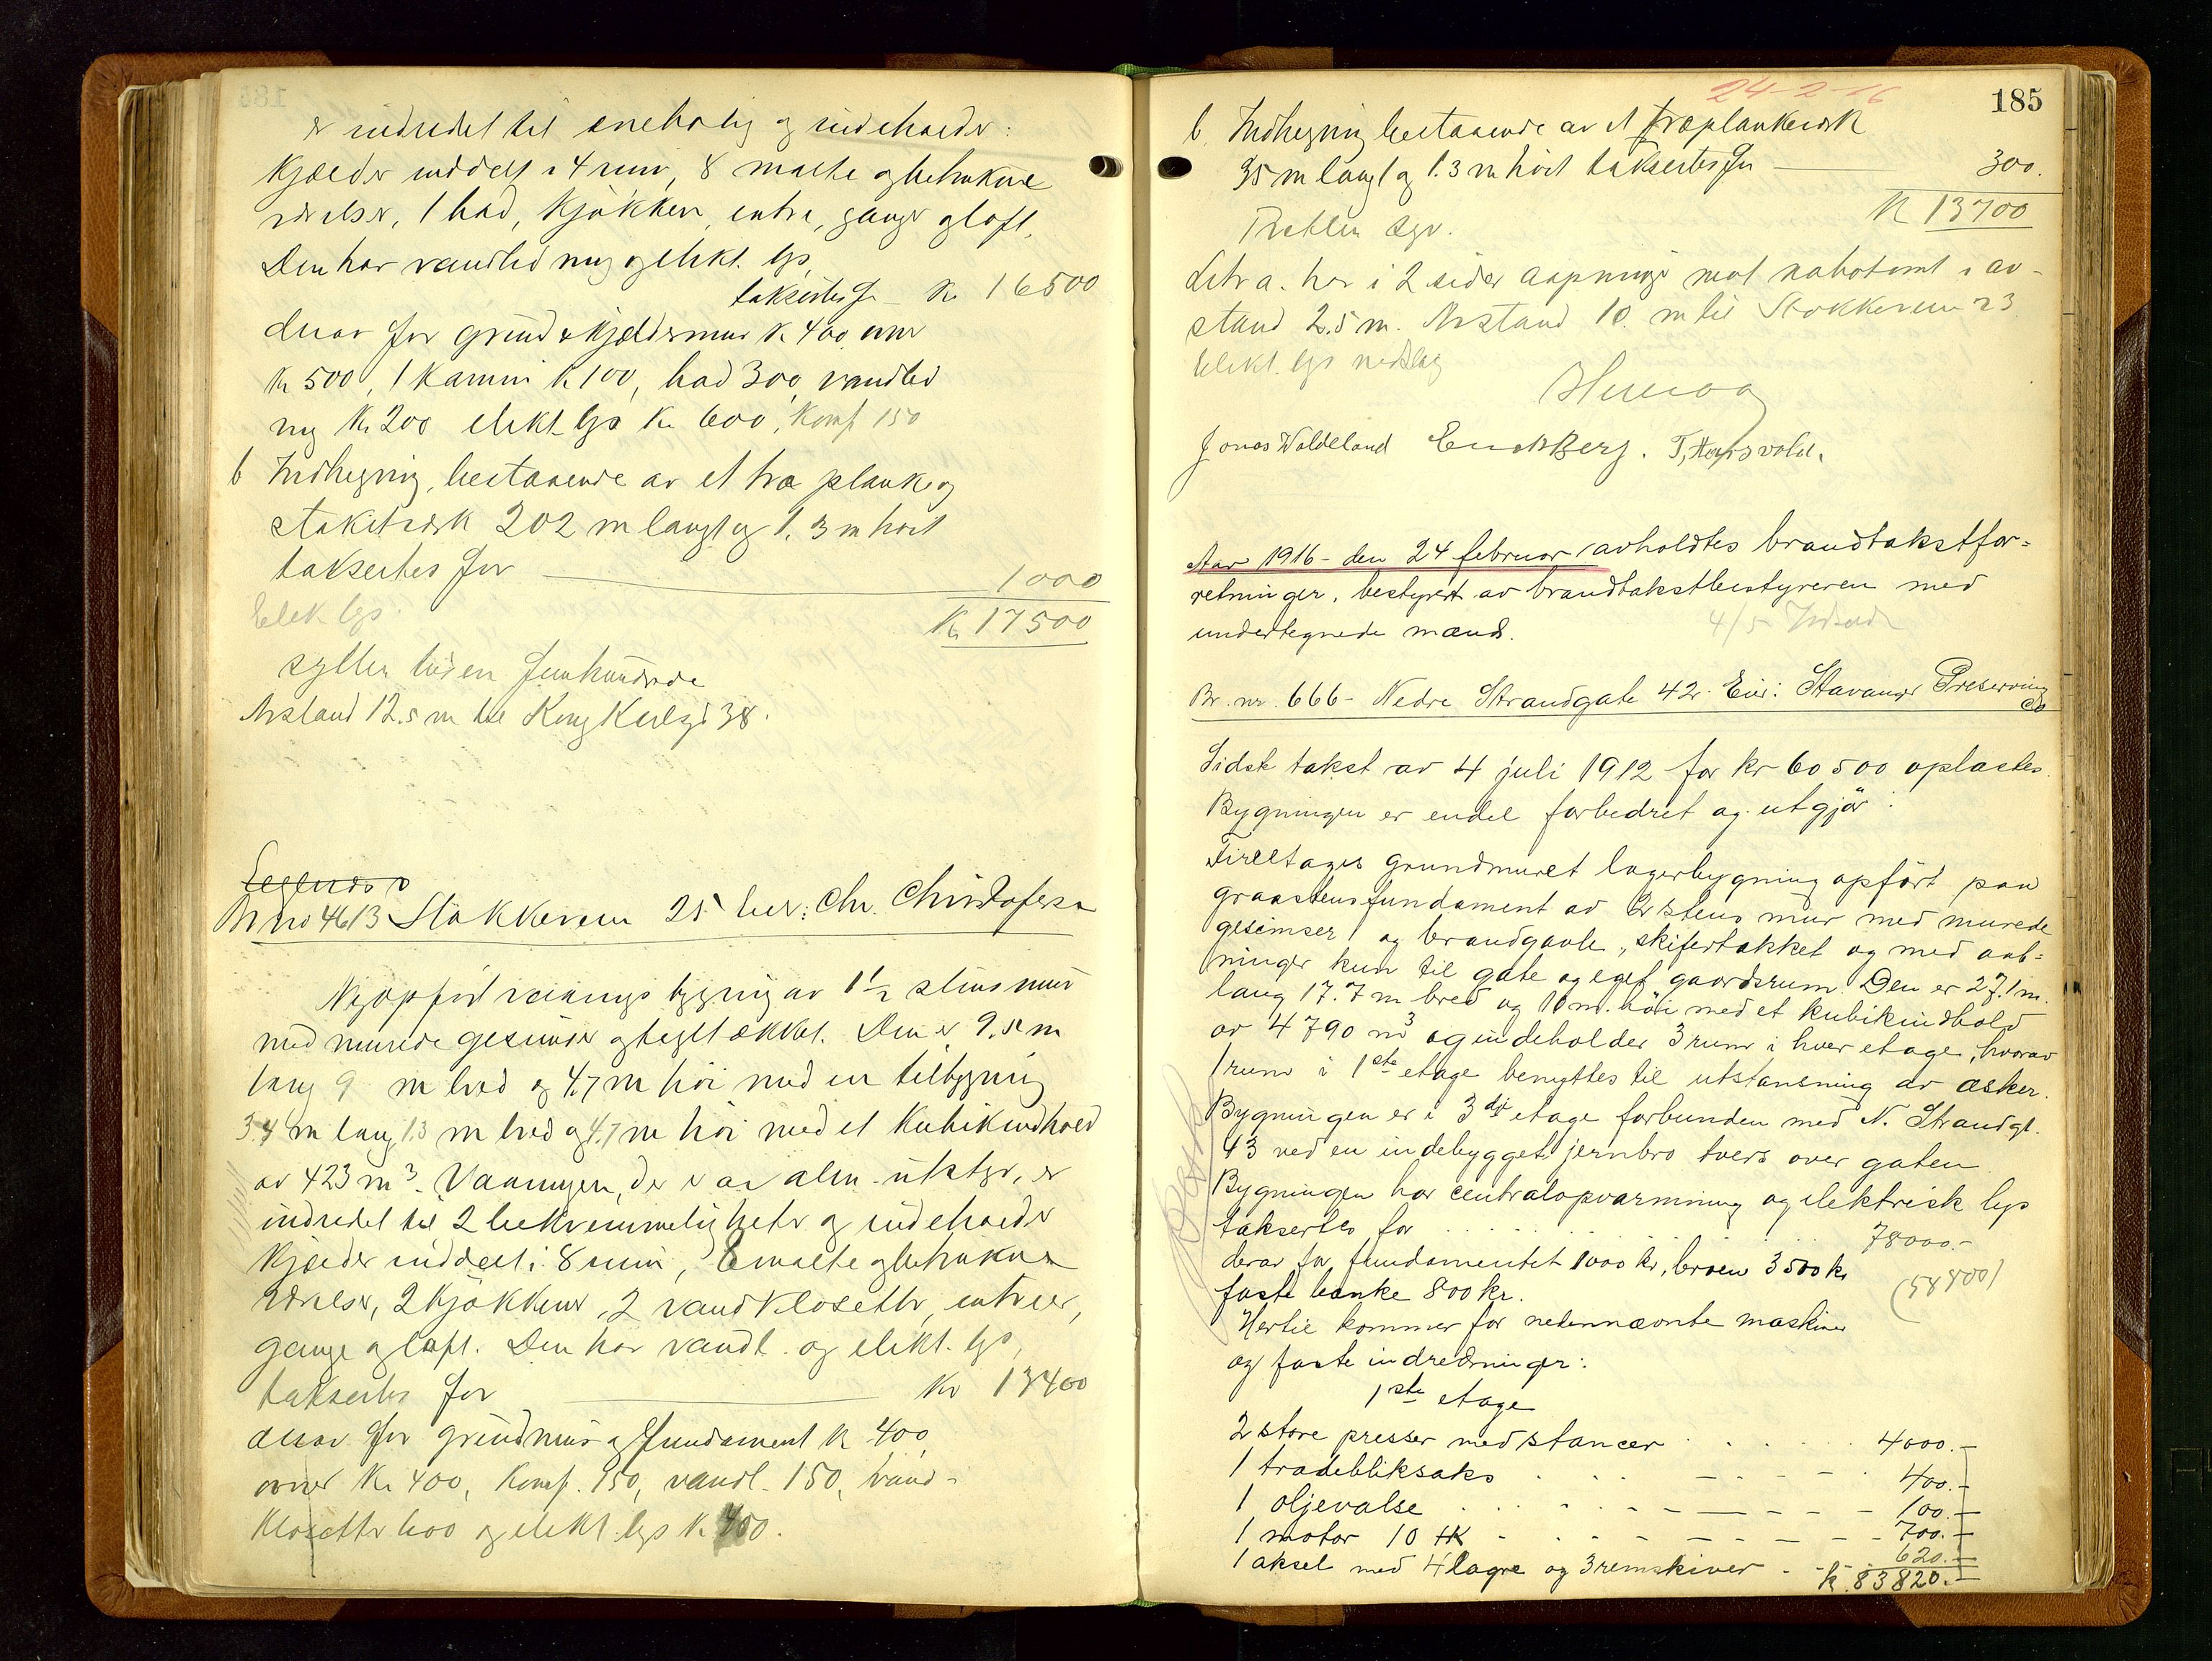 er indredet til enebolig og indeholder:
Kjælder inddelt i 4 rum, 8 malte og betrukne
værelser, 1 bad, kjøkken, entre, gange og loft.
Den har vandledning og elekt. lys
taksertes for – Kr 16500
derav for grund & kjældermur kr. 400, ovne
Kr 500, 1 kamin kr 100, bad 300, vandled
ning Kr 200 elekt. lys Kr 600, Komf 150
b Indhegning, bestaaende av et træ planke og
stakitværk 202 m langt og 1.3 m høit
taksertes for 1000
Elek lys. Kr 17500
sytten tusen femhundrede
Avstand 12.5 m til Kong Karlsgt 38.
Br no 4613 Stokkeveien 25 Eier: Chr. Christofersen
Nyopført vaanings bygning av 1 1/2 stens mur
med murede gesimser og tegltækket. Den er 9.5 m
lang 9 m bred og 4.7 m høi med en tilbygning
3.4 m lang 1.3 m bred og 4.7 m høi med et Kubikindhold
av 423 m3. Vaaningen, der er av alm. utstyr, er
indredet til 2 bekvemmeligheter og indeholder
Kjælder inddelt i 8 rum, 6 malte og betrukne
værelser, 2 Kjøkkener, 2 vandklosetter, entreer,
gange og loft. Den har vandl. og elekt. lys,
taksertes for Kr 13400
derav for grundmur og fundament kr 400,
ovner Kr 400, Komf. 150, vandl. 150, vand-
klosetter 600 og elekt. lys kr. 400.
24-2-16
185
b. Indhegning bestaaende av et træplankeverk
35 m langt og 1.3 m høit taksertes for 300.
K 13700
Litra a. har i 2 sider aapninger mot nabotomt i av-
stand 2.5 m. Avstand 10. m til Stokkeveien 23
Elekt. lys nedlag
Jonas Woldeland Erick Berg. T, Haaversvold.
Aar 1916 – den 24 februar avholdtes brandtakstfor=
retninger, bestyret av brandtakstbestyreren med
undertegnede mænd.
Br. nr. 666 – Nedre Strandgate 42. Eier: Stavanger Preserving
Co
Sidste takst av 4 juli 1912 for kr 60500 oplæstes.
Bygningen er endel forbedret og utgjør:
Fireetages grundmuret lagerbygning opført paa
graastensfundament av 2 stens mur med murede
gesimser og brandgavle, skifertækket og med aab=
ninger kun til gate og eget gaardsrum. Den er 27.1 m.
lang 17.7 m bred og 10 m. høi med et kubikindhold
av 4790 m3 og indeholder 3 rum i hver etage, hvorav
1 rum i 1ste etage benyttes til utstansning av æsker.
Bygningen er i 3dje etage forbunden med N. Strandgt.
43 ved en indebygget jernbro tvers over gaten.
Bygningen har centralopvarmning og elektrisk lys
taksertes for . . . . . . 78000.–
derav for fundamentet 1000 kr, broen 3500 kr
faste bænke 800 kr. (58400)
Hertil kommer for nedennævnte maskiner
og faste indredninger:
1ste etage
2 store presser med stancer . . . . 4000.–
1 tradebliksaks . . . – – – 400.–
1 oljevalse . . . – – – 100.–
1 motor 10 HK – – – – 700.–
1 aksel med 4 lagre og 3 remskiver – 620.–
K. 83820.–